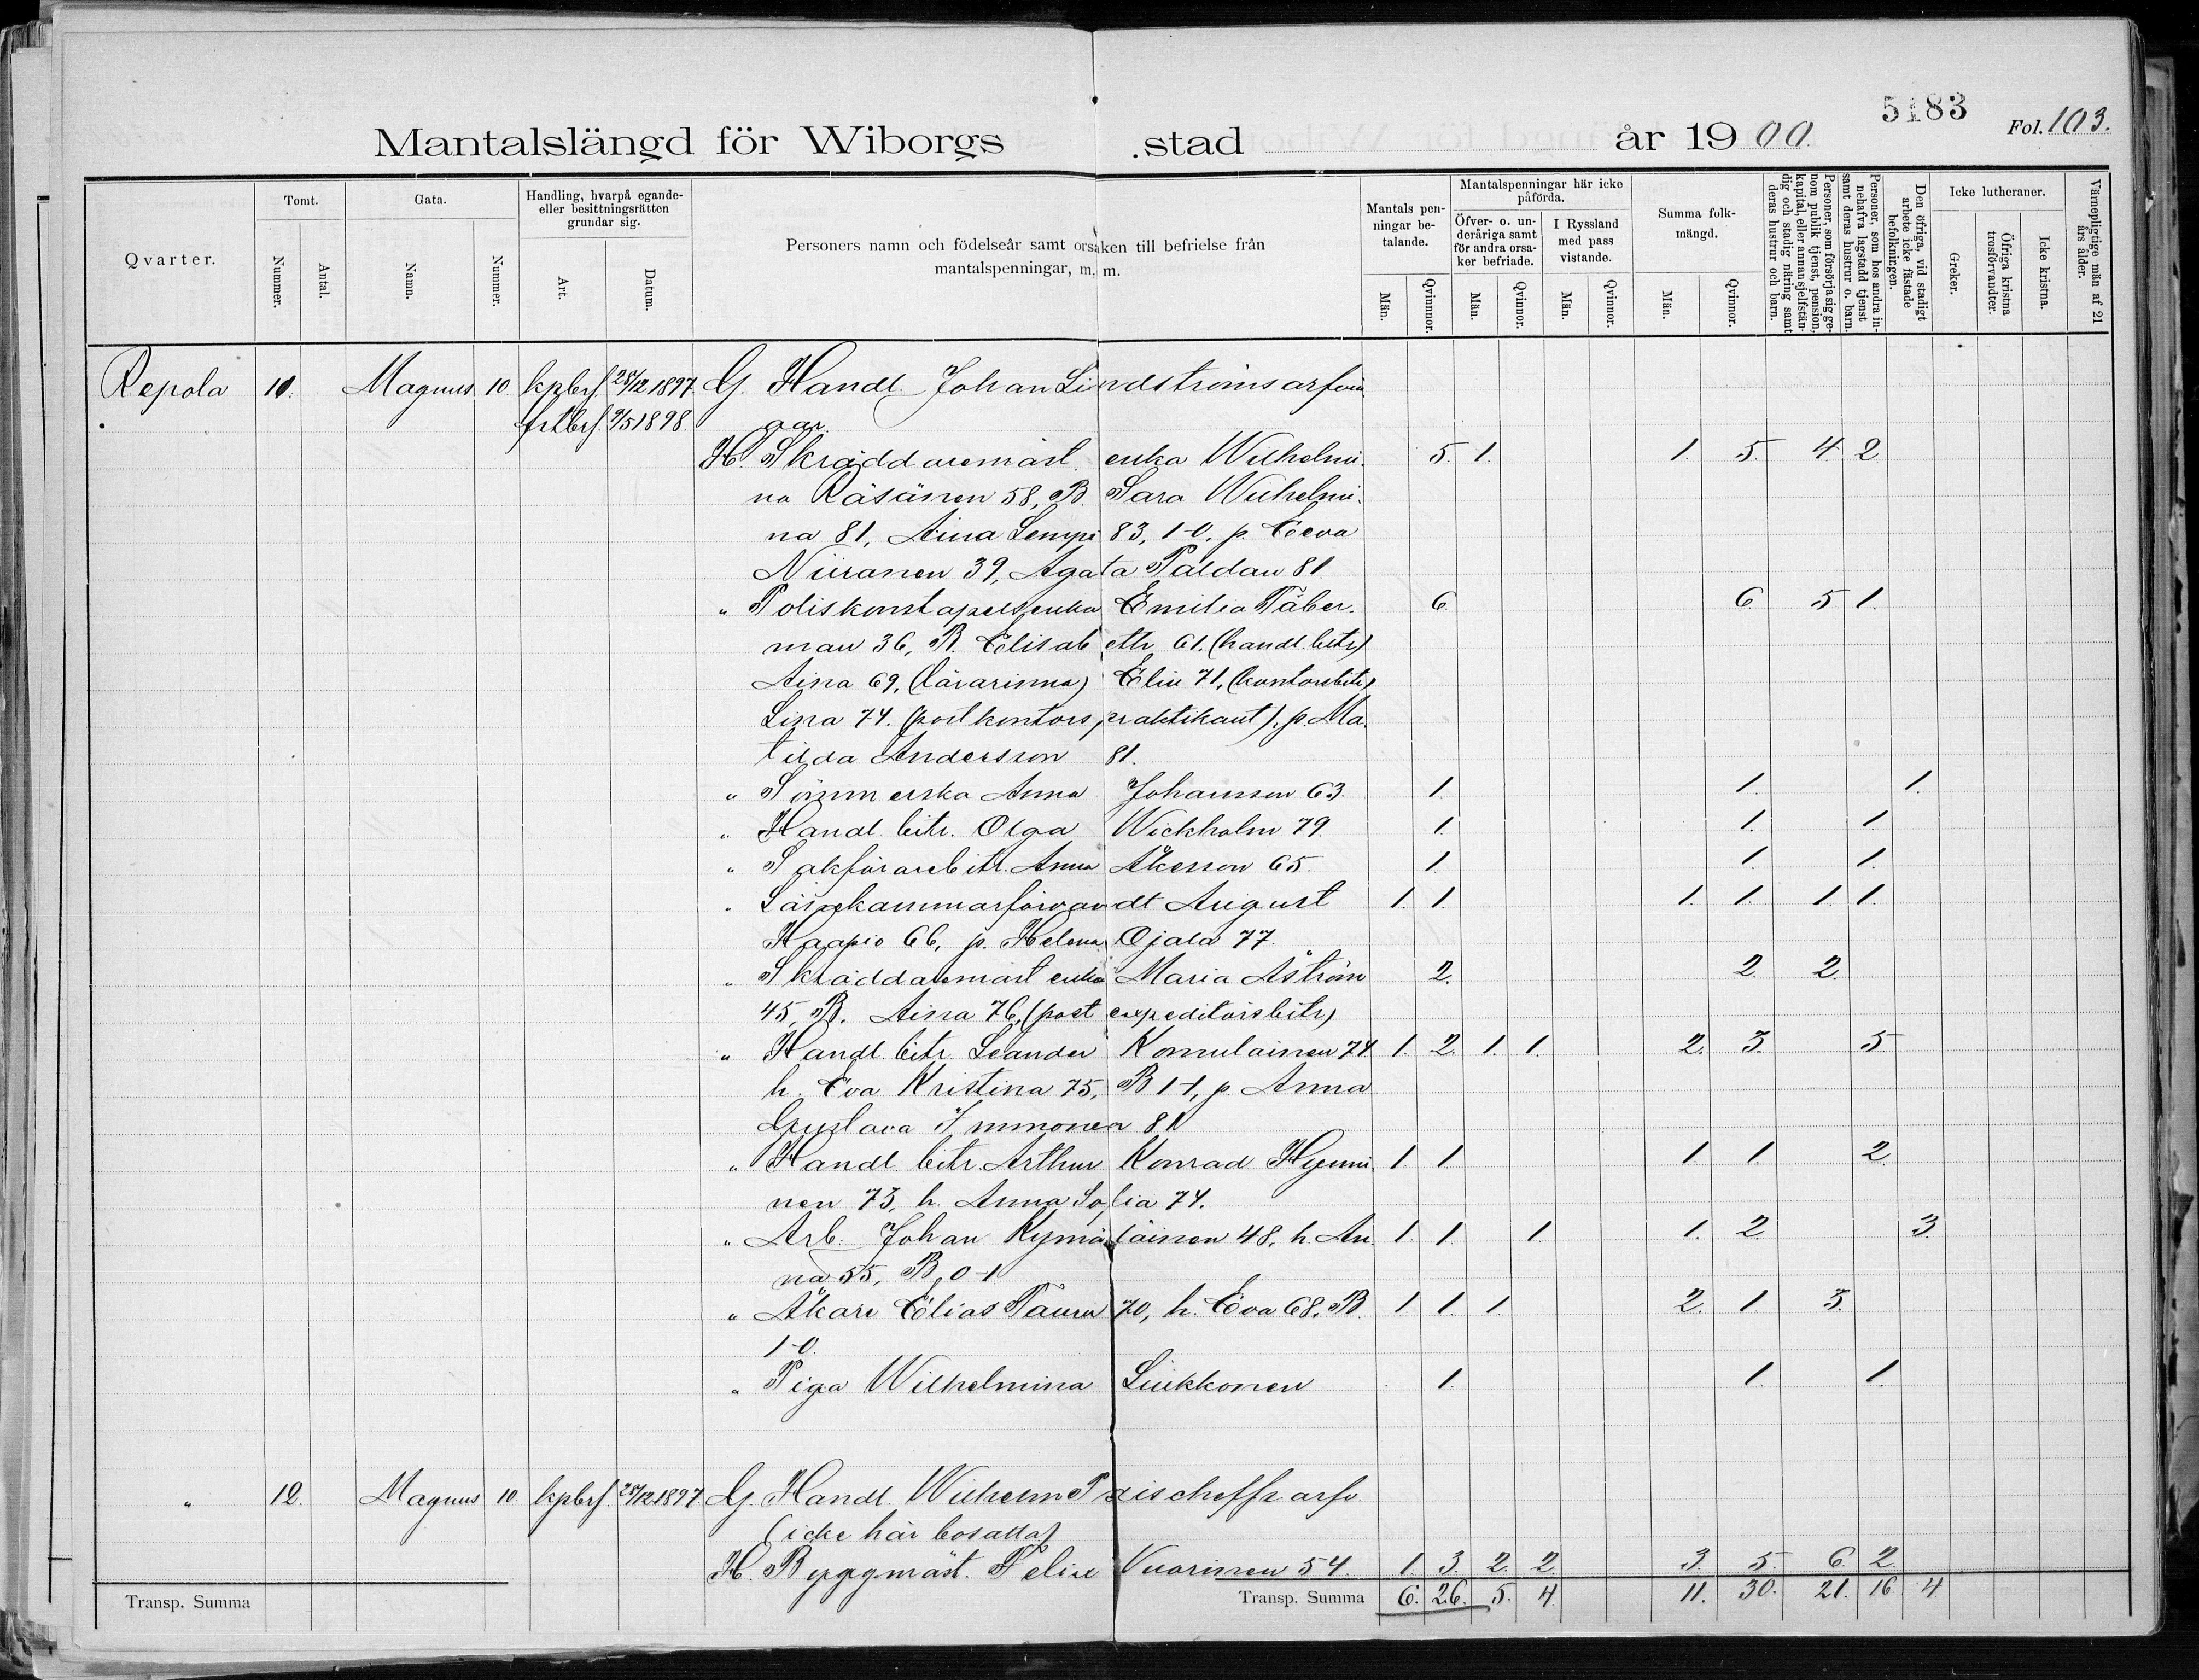 5183
Fol. 103.
Mantalslängd för Wiborgs stad år 1900.
Qvarter.
Tomt.
Nummer.
Antal.
Gata.
Namn.
Nummer.
Handling, hvarpå egande- eller besittningsrätten grundar sig.
Art.
Datum.
Personers namn och födelseår samt orsaken till befrielse från mantalspenningar, m. m.
Mantals penningar betalande.
Män.
Qvinnor.
Mantalspenningar här icke påförda.
Öfver- o. underåriga samt för andra orsaker befriade.
Män.
Qvinnor.
I Ryssland med pass vistande.
Män.
Qvinnor.
Summa folkmängd.
Män.
Qvinnor.
Personer, som försörja sig genom publik tjenst, pension, kapital, eller annan sjelfständig och stadig näring samt deras hustrur och barn.
Personer, som hos andra innehafva lagstadd tjenst samt deras hustrur o. barn.
Den öfriga, vid stadigt arbete icke fästade befolkningen.
Icke lutheraner.
Greker.
Öfriga kristna trosförvandter.
Icke kristna.
Värnepligtige män af 21 års ålder.
Repola 10. Magnus 10. kpbrf. 28/12 1897. G. Handl. Johan Lindströms arfvin
frtbrf. 9/5 1898. gar.
H. Skräddaremäst. enka Wilhelmi- 5. 1. 1. 5. 4. 2.
na Räsänen 58, B. Sara Wilhelmi-
na 81, Aina Lempi 83, 1-0, p. Eeva
Niiranen 39, Agata Paldan 81.
" Poliskonstapelsenka Emilia Täber- 6. 6. 5. 1.
man 36, B. Elisabeth 61, (handl. bitr)
Aina 69, (lärarinna) Elin 71, (kontorsbitr)
Lina 74. (postkontors praktikant), p. Ma-
tilda Andersson 81.
" Sömmerska Anna Johansson 63. 1. 1. 1.
" Handl. bitr. Olga Wickholm 79. 1. 1. 1.
" Sakförarebitr. Anna Åkesson 65. 1. 1. 1.
" Länekammarförvandt August 1. 1. 1. 1. 1. 1.
Haapio 66, p. Helena Ojala 77.
" Skräddaremäst enka Maria Åström 2. 2. 2.
45, B. Aina 76, (post expeditörsbitr)
" Handl. bitr. Leander Komulainen 74 1. 2. 1. 1. 2. 3. 5.
h. Eva Kristina 75, B 1-1, p. Anna
Gustava Immonen 81
" Handl. bitr. Arthur Konrad Hynni- 1. 1. 1. 1. 2.
nen 73, h. Anna Sofia 74.
" Arb. Johan Kymäläinen 48, h. An- 1. 1. 1. 1. 2. 3.
na 55, B, 0-1
" Åkare Elias Tauru 70, h. Eva 68, B. 1. 1. 1. 2. 1. 3.
1-0.
" Piga Wilhelmina Liukkonen 1. 1. 1.
" 12. Magnus 10. kpbrf. 28/12 1897 G. Handl. Wilhelm Paischeffs arfv.
(icke här bosatta)
H. Byggmäst. Felix Vuorinen 54. 1. 3. 2. 2. 3. 5. 6. 2.
Transp. Summa Transp. Summa 6. 26. 5. 4. 11. 30. 21. 16. 4